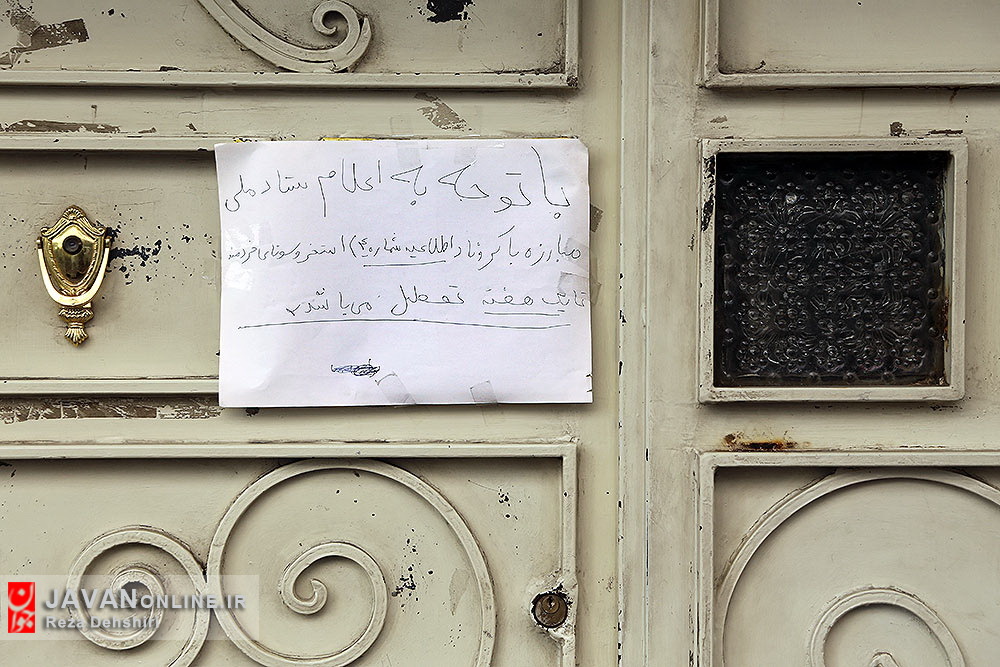 با توجه به اعلام ستاد ملی
مبارزه با کرونا (اطلاعیه شماره ۴) استخر و سونای
تا یک هفته تعطیل می باشد
JAVANONLINE.IR
Reza Dehshiri